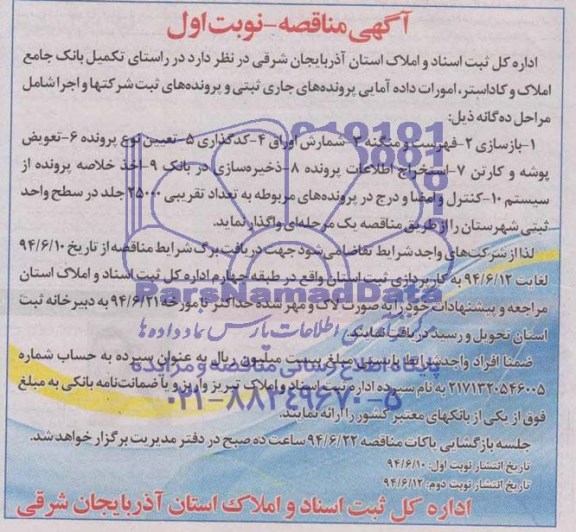 آگهی مناقصه - نوبت اول
اداره کل ثبت اسناد و املاک استان آذربایجان شرقی در نظر دارد در راستای تکمیل بانک جامع
املاک و کاداستر، امورات داده آمایی پرونده‌های جاری ثبتی و پرونده‌های ثبت شرکتها و اجرا شامل
مراحل ده‌گانه ذیل:
۱- بازسازی ۲- فهرست و منگنه ۳- شمارش اوراق ۴- کدگذاری ۵- تعیین نوع پرونده ۶- تعویض
پوشه و کارتن ۷- استخراج اطلاعات پرونده ۸- ذخیره‌سازی در بانک ۹- اخذ خلاصه پرونده از
سیستم ۱۰- کنترل و امضا و درج در پرونده‌های مربوطه به تعداد تقریبی ۲۵۰۰۰ جلد در سطح واحد
ثبتی شهرستان را از طریق مناقصه یک مرحله‌ای واگذار نماید.
لذا از شرکت‌های واجد شرایط تقاضا می‌شود جهت دریافت برگ شرایط مناقصه از تاریخ ۹۴/۶/۱۰
لغایت ۹۴/۶/۱۲ به کارپردازی ثبت استان واقع در طبقه چهارم اداره کل ثبت اسناد و املاک استان
مراجعه و پیشنهادات خود را به صورت لاک و مهر شده حداکثر تا مورخه ۹۴/۶/۲۱ به دبیرخانه ثبت
استان تحویل و رسید دریافت نمایند.
ضمنا افراد واجد شرایط بایستی مبلغ بیست میلیون ریال به عنوان سپرده به حساب شماره
۲۱۷۱۳۲۰۵۴۶۰۰۵ به نام سپرده اداره ثبت اسناد و املاک تبریز واریز و یا ضمانت‌نامه بانکی به مبلغ
فوق از یکی از بانکهای معتبر کشور را ارائه نمایند.
جلسه بازگشایی پاکات مناقصه ۹۴/۶/۲۲ ساعت ده صبح در دفتر مدیریت برگزار خواهد شد.
تاریخ انتشار نوبت اول: ۹۴/۶/۱۰
تاریخ انتشار نوبت دوم: ۹۴/۶/۱۲
اداره کل ثبت اسناد و املاک استان آذربایجان شرقی
ParsNamadData
پایگاه اطلاع رسانی مناقصه و مزایده
۰۲۱-۸۸۳۴۹۶۷۰-۵